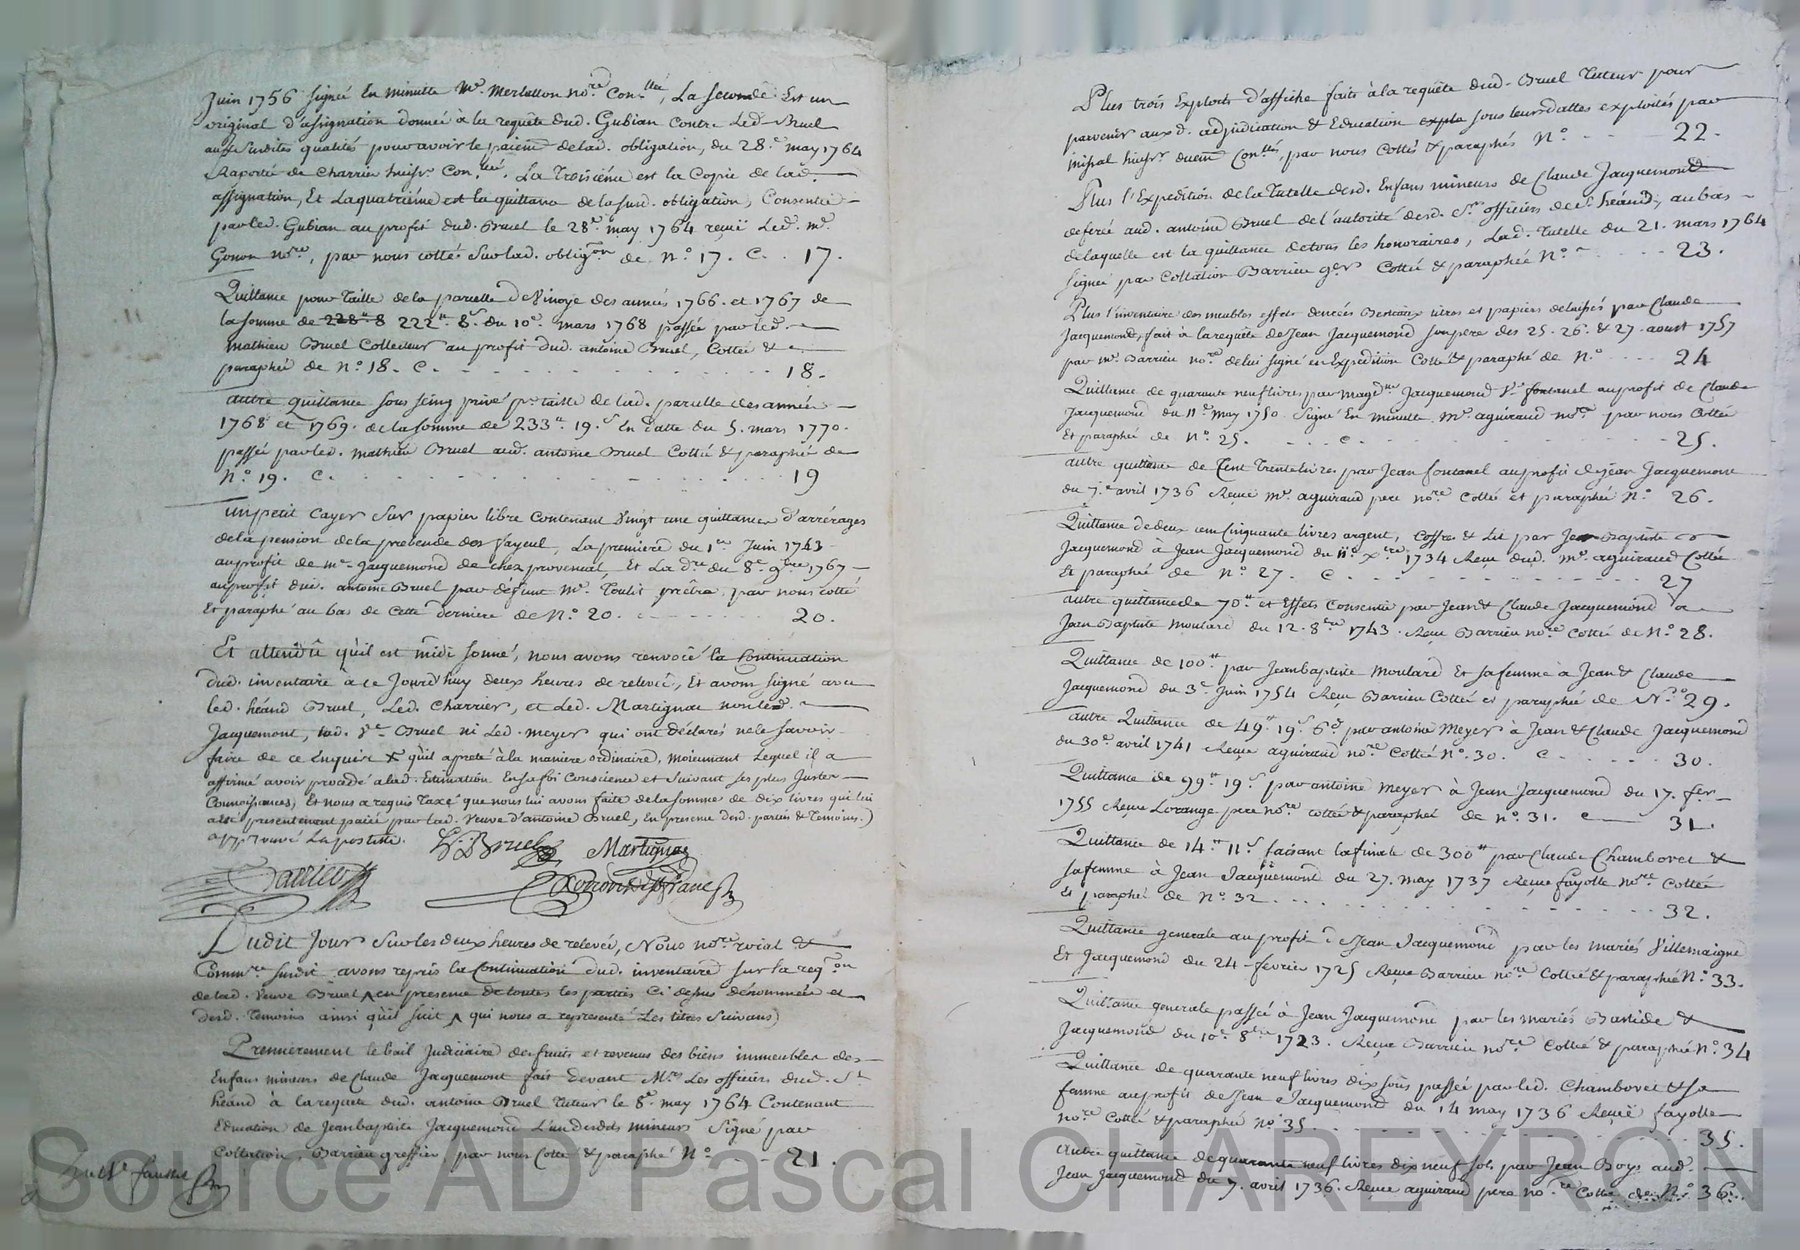 Juin 1756 signé En minutte Me. Merlatton nore. Con.lté, La seconde Est un
original d'assignation donnée à la requête dud. Gubian Contre Led. Bruel
auxd. susdites qualités pour avoir le paiemt. de lad. obligation, du 28.e may 1764
Raporté de Charrier huissr. Con.lté. La Troisiéme est la Copie de lad.
assignation, Et La quatriéme est la quittance de la susd. obligation, Consentie
par led. Gubian au profit dud. Bruel le 28.e may 1764 reçuë Led. me.
Gonon nore. par nous cottés sur lad. obligon. de N.o 17. C. . 17.
Quittance pour taille de la parcelle de Vinoye des années 1766. et 1767 de
la somme de 228.tt 8 222.tt 8.s du 10.e mars 1768 passée par led.
Mathieu Bruel Collecteur au profit dud. antoine Bruel, Cottée &
paraphée de N.o 18. C. 18.
autre quittance sous seing privé pr. taille de lad. parcelle des années
1768 et 1769. de la somme de 233.tt 19.s En datte du 5. mars 1770.
passée par led. mathieu Bruel aud. antoine Bruel Cotté & paraphée de
N.o 19. C. 19
un petit Cayer sur papier libre Contenant Vingt une quittances d'arrérages
de la pension de la prebende des Vayeul, La premiere du 1.er Juin 1743
au profit de me. Jacquemond de chez provençal, Et La dre. du 8.e 9bre 1767
au profit dud. antoine Bruel par défunt Mr. Toulit prêtre, par nous cotté
Et paraphé au bas de Cette derniere de N.o 20. 20.
Et attendû qu'il est midi sonné, nous avons renvoïé la Continuation
dud. inventaire à ce Jourd'huy deux heures de relevée, Et avons signé avec
led. héaud Bruel, Led. Charrier, et Led. Martignac non led.
Jacquemont, lad. Ve. Bruel ni Led. meyer qui ont déclarés ne le savoir
faire de ce Enquis X qu'il a preté à la maniere ordinaire, moiennant Lequel il a
affirmé avoir procédé a lad. Estimation En sa foi Conscience et suivant ses plus Justes
Connoissances, Et nous a requis Taxe que nous lui avons faite de la somme de dix livres qui lui
a été presentement païée par lad. Veuve d'antoine Bruel, En presence desd. parties & Temoins.)
approuvé La postille.
Bruel Martignac
Dudit Jour sur les deux heures de relevée, Nous nore. roïal &
Commre. susdit avons repris la Continuation dud. inventaire sur la reqon.
de lad. Veuve Bruel en presence de toutes les parties Ci dessus dénommées et
desd. Temoins ainsi qu'il suit qui nous a representé Les titres suivans)
Premierement le bail Judiciaire des fruits et revenus des biens immeubles des
Enfans mineurs de Claude Jacquemont fait devant Mrs. Les officiers dud. St.
héand à la requete dud. antoine Bruel Tuteur le 8.e may 1764 Contenant
Education de Jean baptiste Jacquemond L'un desdits mineurs Signé par
Collation, Barrieu greffier, par nous Cotté & paraphé N.o 21.
Plus trois Exploits d'affiche faits à la requête dud. Bruel Tuteur pour
parvenir auxd. adjudication & Education explo sous leurs dattes exploités par
mistral huissr. duem Con.ltés, par nous Cottés & paraphés N.o 22.
Plus l'Expedition de la Tutelle desd. Enfans mineurs de Claude Jacquemond
deferée aud. antoine Bruel de l'autorité desd. Srs. officiers de St. héand, au bas
de laquelle est la quittance de tous les honoraires, Lad. Tutelle du 21. mars 1764
signée par Collation Barrieu ger. Cottée & paraphée N.o 23.
Plus l'inventaire des meubles effets denrées Bestiaux titres et papiers delaissés par Claude
Jacquemond, fait à la requête de Jean Jacquemond son pere des 25. 26. & 27. aoust 1757
par me. Barrieu nore. de lui signé en Expedition Cotté & paraphé de N.o 24
Quittance de quarante neuf livres par magdne. Jacquemond Ve. fontanel au profit de Claude
Jacquemond du 11.e may 1750. Signé En minutte. Me. aguiraud nore. par nous Cottée
Et paraphée de N.o 25. C. 25.
autre quittance de Cent Trente livres par Jean fontanel au profit de Jean Jacquemond
du 7.e avril 1736 Reçuë me. aguiraud pere nore. Cottée et paraphée N.o 26.
Quittance de deux cent Cinquante livres argent, Coffre & Lit par Jean Baptiste
Jacquemond à Jean Jacquemond du 11.e Xbre. 1734 Reçue dud. me. aguiraud Cottée
Et paraphée de N.o 27. C. 27
autre quittance de 70.tt et Effets Consentie par Jean & Claude Jacquemond à
Jean Baptiste Moulard du 12. 8bre 1743. Reçue Barrieu nore. Cottée de N.o 28.
Quittance de 100.tt par Jean baptiste Moulard Et sa femme à Jean & Claude
Jacquemond du 3.e Juin 1754 Reçue Barrieu Cottée et paraphée de N.o 29.
autre Quittance de 49.tt 19.s 6.d par antoine Meyer à Jean & Claude Jacquemond
du 30.e avril 1741 Reçue aguiraud nore. Cottée N.o 30. C. 30.
Quittance de 99.tt 19.s par antoine Meyer à Jean Jacquemond du 17. fer.
1755 Reçue Lorange pere nore. cottée & paraphée de N.o 31. 31.
Quittance de 14.tt 11.s faisant la finale de 300.tt par Claude Chambovet &
sa femme à Jean Jacquemond du 27. may 1737 Reçue fayolle nore. Cottée
Et paraphée de N.o 32. 32.
Quittance generale au profit de Jean Jacquemond par les mariés Villemaigne
Et Jacquemond du 24 fevrier 1725 Reçue Barrieu nore. Cottée & paraphée N.o 33.
Quittance generale passée à Jean Jacquemond par les mariés Bastide &
Jacquemond du 10.e 8bre 1723. Reçue Barrieu nore. Cottée & paraphée N.o 34
Quittance de quarante neuf livres dix sous passée par led. Chambovet & sa
femme au profit de Jean Jacquemond du 14 may 1736 Reçuë fayolle
nore. Cottée & paraphée N.o 35 35.
Autre quittance de quarante neuf livres dix neuf sols par Jean Boys aud.
Jean Jacquemond du 7. avril 1736. Reçue aguiraud pere nore. Cottée de N.o 36.
Source AD Pascal CHAREYRON